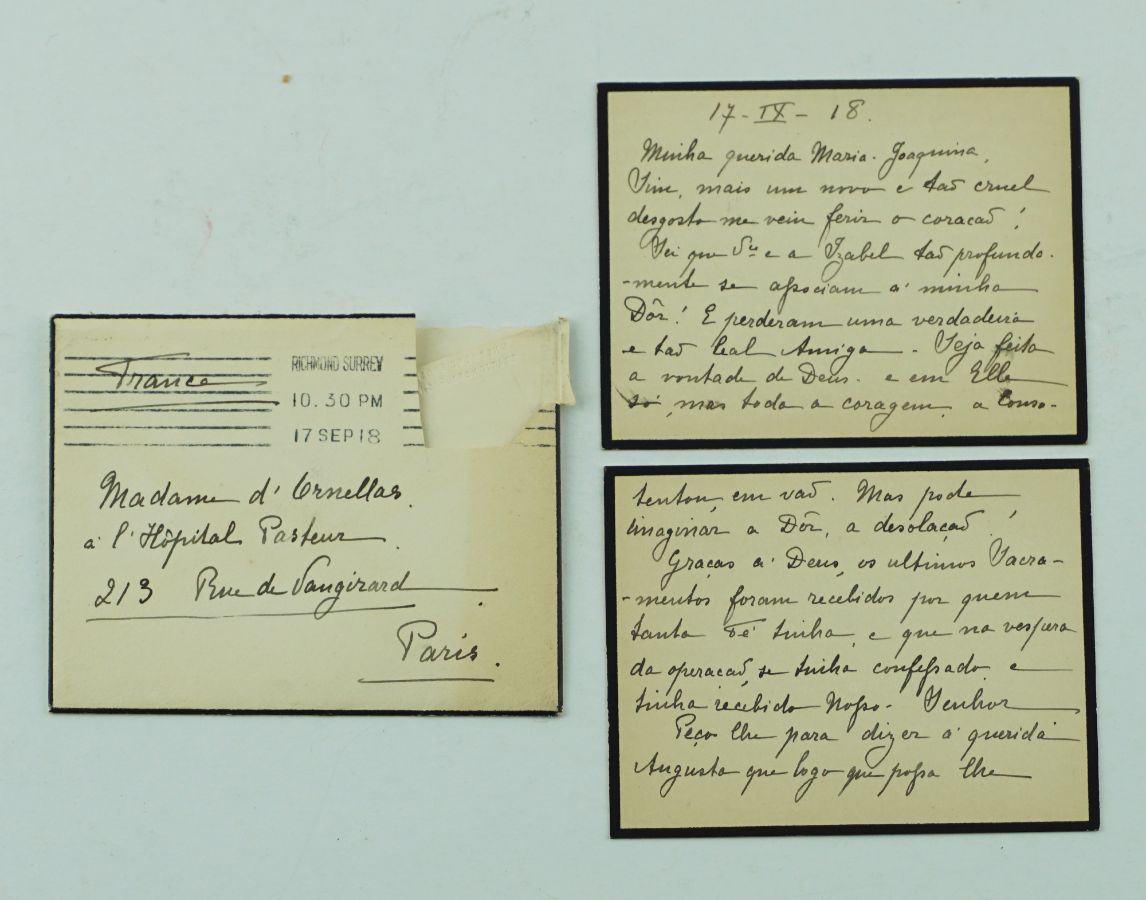 France
RICHMOND SURREY
10.30 PM
17 SEP 18
Madame d'Ornellas.
à l'Hôpital Pasteur.
213 Rue de Vaugirard.
Paris.
17-IX-18.
Minha querida Maria-Joaquina,
Sim, mais um novo e taõ cruel
desgosto me veiu ferir o coracaõ!
Sei que e a Izabel taõ profunda-
-mente se associam á minha
Dôr! E perderam uma verdadeira
e taõ leal Amiga. Seja feita
a vontade de Deus. e em Elle
só, mas toda a coragem, a Conso-
tentou, em vaõ. Mas pode
imaginar a Dôr, a desolaçaõ!
Graças a Deus, os ultimos Sacra-
-mentos foram recebidos por quem
tanta Fé tinha, e que na vespera
da operacaõ, se tinha confessado, e
tinha recebido Nosso-Senhor
Peço lhe para dizer á querida
Augusta que logo que possa lhe